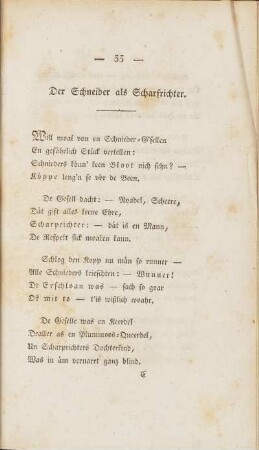 — 33 —
Der Schneider als Scharfrichter.
Will moal von en Schnieder-G'sellen
En gefährlich Stück vertellen:
Schnieders könn' keen Bloot nich sehn? —
Köppe leng'n se vör de Been.
De Gesell dacht: — Noadel, Scheere,
Dät gift alles keene Ehre,
Scharprichter: — dät is en Mann,
De Respekt sick moaken kann.
Schlog den Kopp nu män so runner —
Alle Schnieders kriesichten: — Wunner!
De Erschloan was — sach so grar
Of mit to — t'is wißlich woahr.
De Geselle was en Keerdel
Draller as en Plummoos-Queerdel,
Un Scharprichters Dochterkind,
Was in äm vernarrt ganz blind.
C